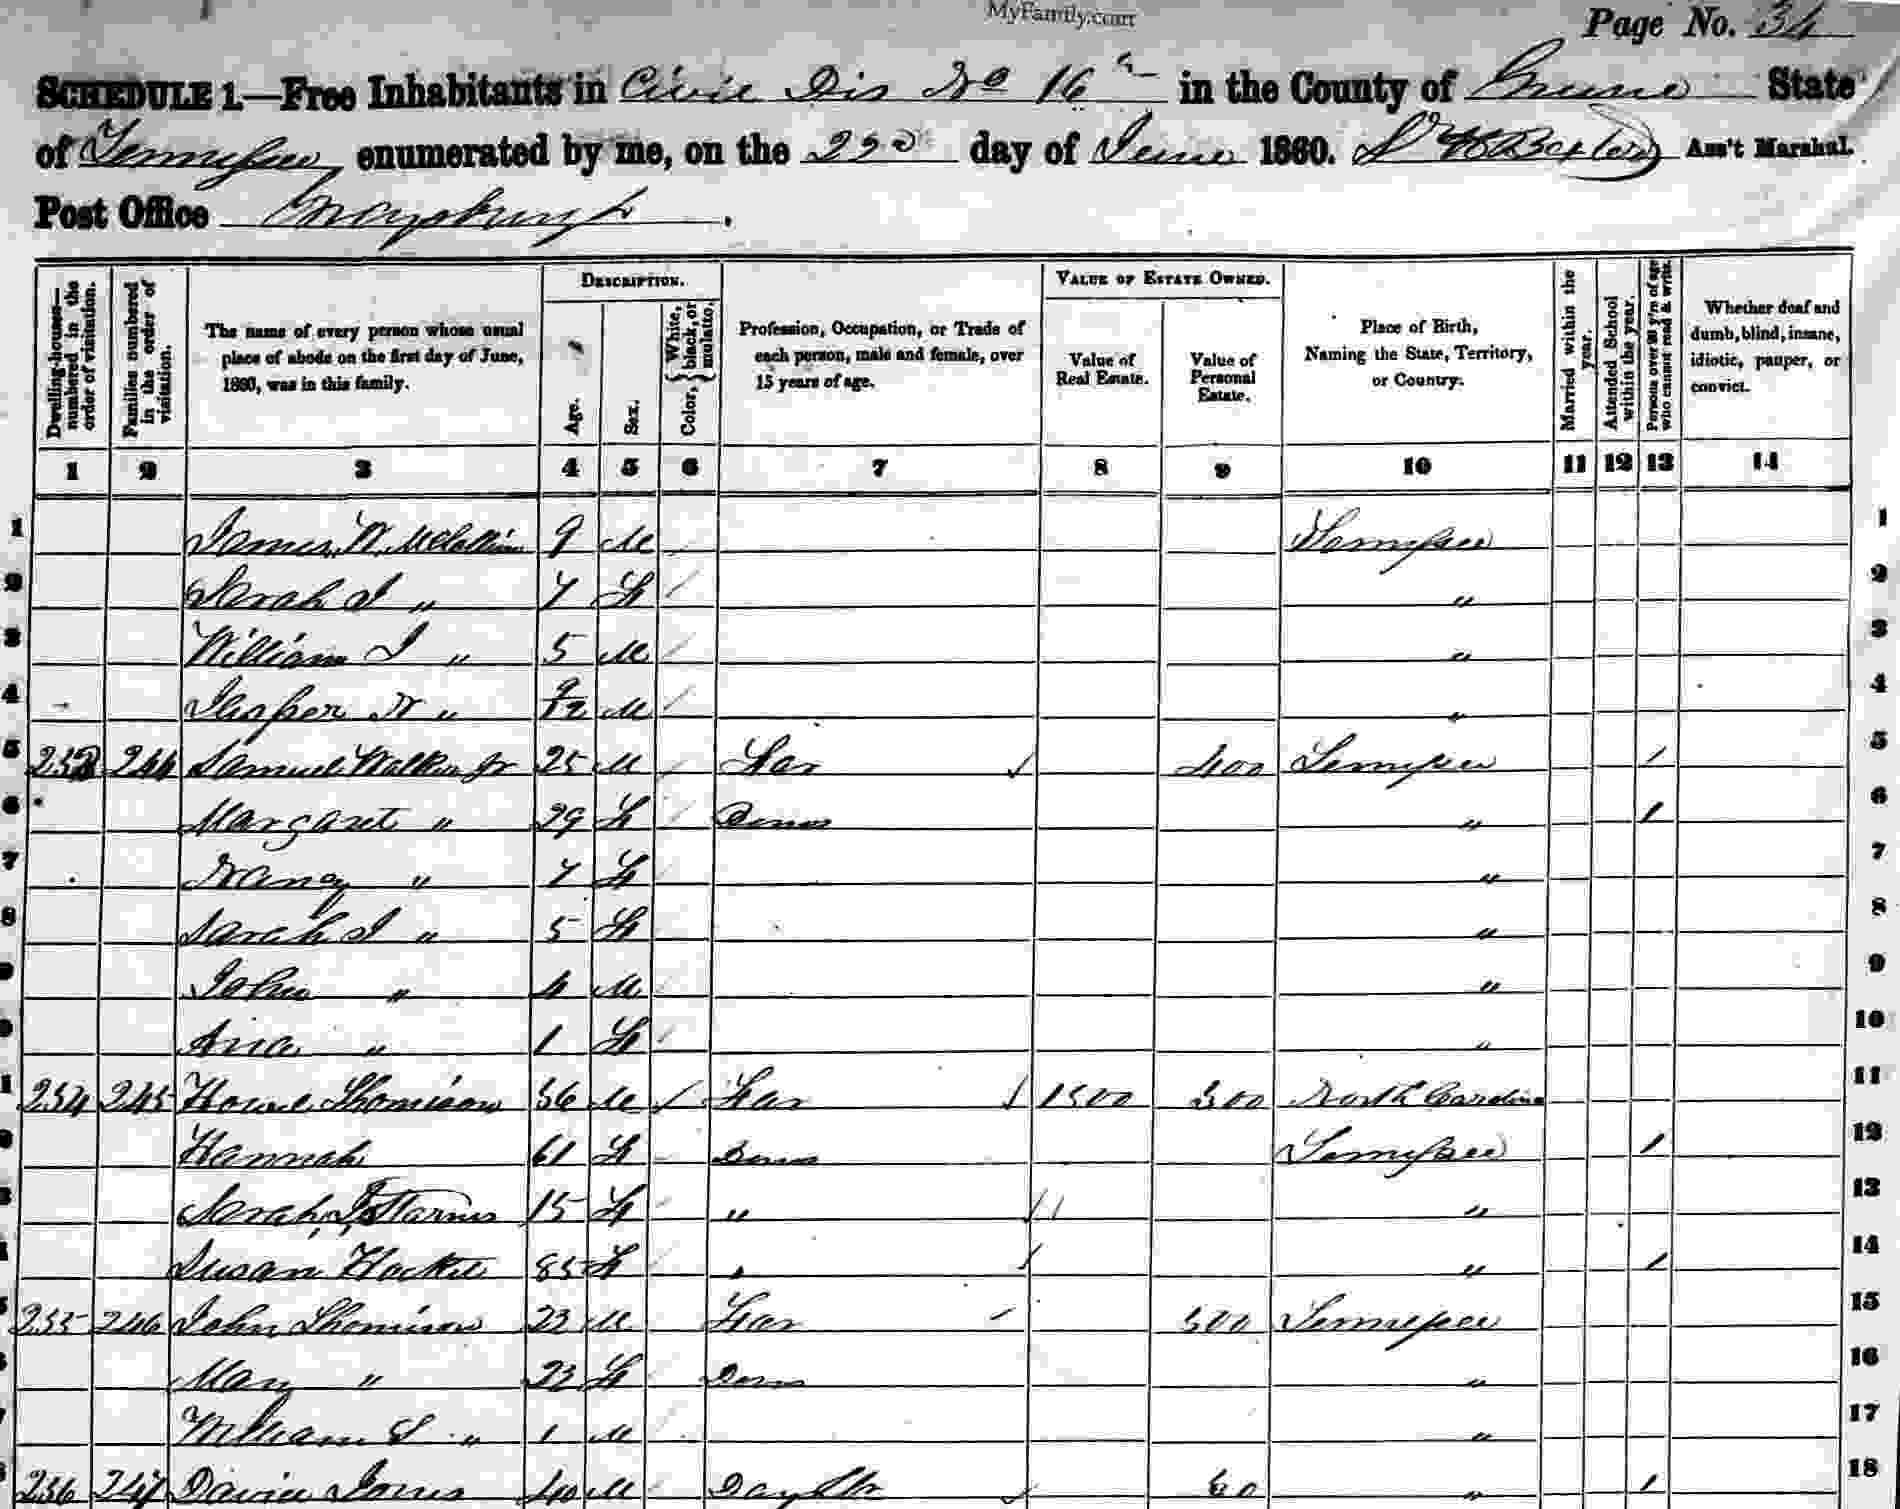 MyFamily.com
Page No. 34
SCHEDULE 1.—Free Inhabitants in Civil Dis No 16 in the County of Greene State
of Tennessee enumerated by me, on the 22d day of June 1860. Ass't Marshal.
Post Office
Dwelling-houses—numbered in the order of visitation.
Families numbered in the order of visitation.
The name of every person whose usual place of abode on the first day of June, 1860, was in this family.
DESCRIPTION.
Age.
Sex.
Color, { White, black, or mulatto.
Profession, Occupation, or Trade of each person, male and female, over 15 years of age.
VALUE OF ESTATE OWNED.
Value of Real Estate.
Value of Personal Estate.
Place of Birth, Naming the State, Territory, or Country.
Married within the year.
Attended School within the year.
Persons over 20 y'rs of age who cannot read & write.
Whether deaf and dumb, blind, insane, idiotic, pauper, or convict.
1 2 3 4 5 6 7 8 9 10 11 12 13 14
1 James W. 9 M / Tennessee 1
2 Sarah J " 7 F / " 2
3 William J " 5 M / " 3
4 Jasper N " 9/12 M / " 4
5 253 244 Samuel Walker Jr 25 M / Far 400 Tennessee / 5
6 Margaret " 29 F / Domes " / 6
7 Nancy " 7 F / " 7
8 Sarah J " 5 F / " 8
9 John " 4 M / " 9
" 1 F / " 10
1 254 245 Thomison 56 M Far 1500 300 North Carolina 11
Hannah 61 F Domes Tennessee / 12
3 Sarah J Starnes 15 F " " 13
Susan 85 F " " / 14
255 246 John Thomison 23 M Far 300 Tennessee 15
Mary " 23 F Doms " 16
William " 1 M " 17
256 247 David Jones 40 M Day 60 " / 18